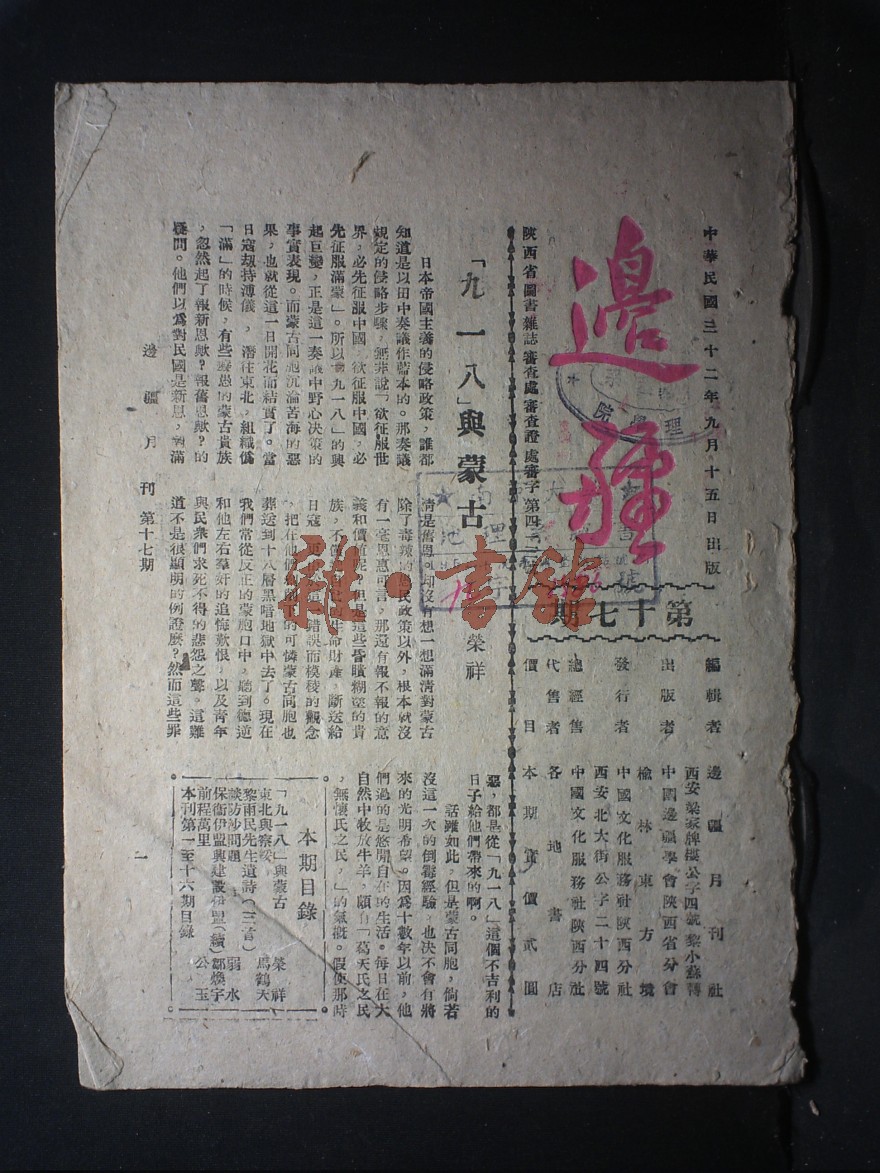 中華民國三十二年九月十五日出版
邊疆
第十七期
編輯者 邊疆月刊社
西安梁家牌樓公字四號黎小蘇轉
出版者 中國邊疆學會陝西省分會
榆林東方壕
發行者 中國文化服務社陝西分社
西安北大街公字二十四號
總經售 中國文化服務社陝西分社
代售者 各地書店
價目 本期實價貳圓
陝西省圖書雜誌審查處審查證處審字第四二號
「九一八」與蒙古
榮祥
日本帝國主義的侵略政策，誰都
知道是以田中奏議作藍本的。那奏議
規定的侵略步驟，無非說「欲征服世
界，必先征服中國，欲征服中國，必
先征服滿蒙」。所以「九一八」的興
起巨變，正是這一奏議中野心決策的
事實表現。而蒙古同胞沉淪苦海的惡
果，也就從這一日開花而結實了。當
日寇刼持溥儀，潛往東北，組織僞
「滿」的時候，有些愚的蒙古貴族
，忽然起了報新恩歟？報舊恩歟？的
疑問。他們以爲對民國是新恩，對滿
清是舊恩。却沒有想一想滿清對蒙古
除了毒辣的民政策以外，根本就沒
有一毫恩惠可言，那還有報不報的意
義和價值呢。但是這些昏瞶糊塗的貴
族，不的生命財產，斷送給
日寇，錯誤而模稜的觀念
，把在他們下的可憐蒙古同胞也
葬送到十八層黑暗地獄中去了。現在
我們常從反正的蒙胞口中，聽到德逆
和他左右羣奸的追悔歎恨，以及青年
與民衆們求死不得的悲怨之聲。這難
道不是很顯明的例證麽？然而這些罪
惡，都是從「九一八」這個不吉利的
日子給他們帶來的啊。
話雖如此，但是蒙古同胞，倘若
沒這一次的倒霉經驗，也決不會有將
來的光明希望。因爲十數年以前，他
們過的是悠閒自在的生活。每日在大
自然中牧放牛羊，頗有「葛天氏之民
，無懷氏之民，」的氣概。假使那時
本期目錄
「九一八」與蒙古 榮祥
東北與察綏 馬鶴天
黎雨民先生遺詩（三首）
談防沙問題 弱水
保衞伊盟與建設伊盟（續） 鄒煥宇
前程萬里 公玉
本刊第一至十六期目錄
邊疆月刊 第十七期 一
雜·書館